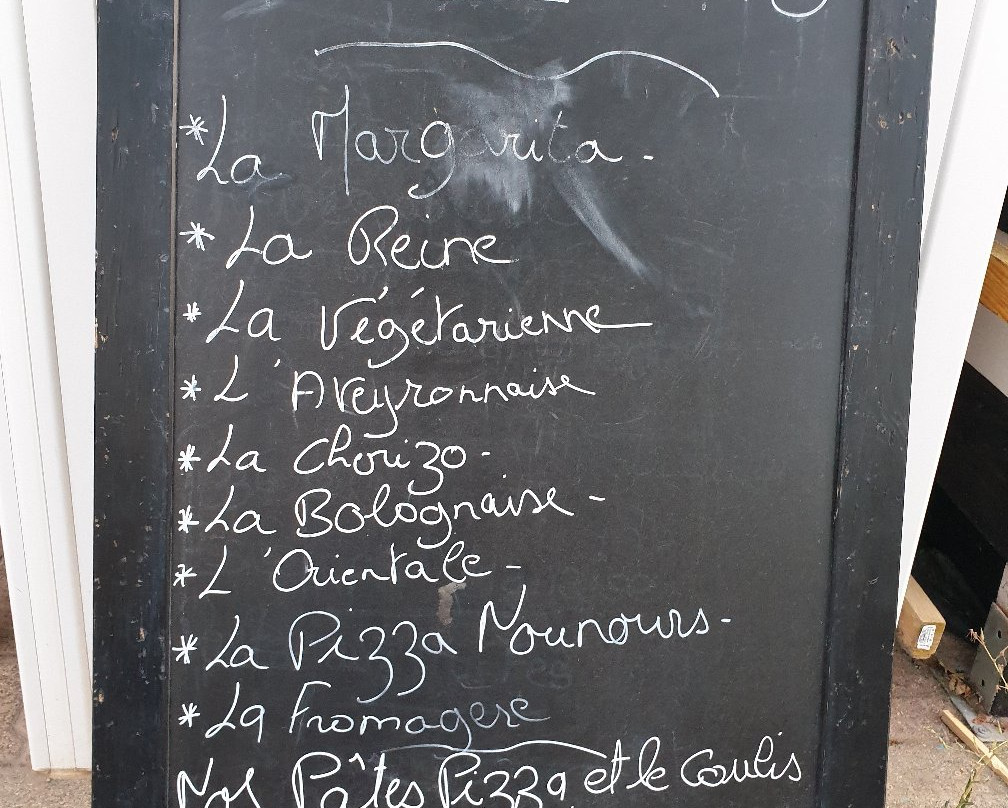 *La Margarita -
* La Reine
* La Végétarienne
* L'Aveyronnaise
* La Chorizo -
* La Bolognaise -
* L'Orientale -
* La Pizza Nounours -
* La Fromagere
Nos Pâtes Pizza et le Coulis